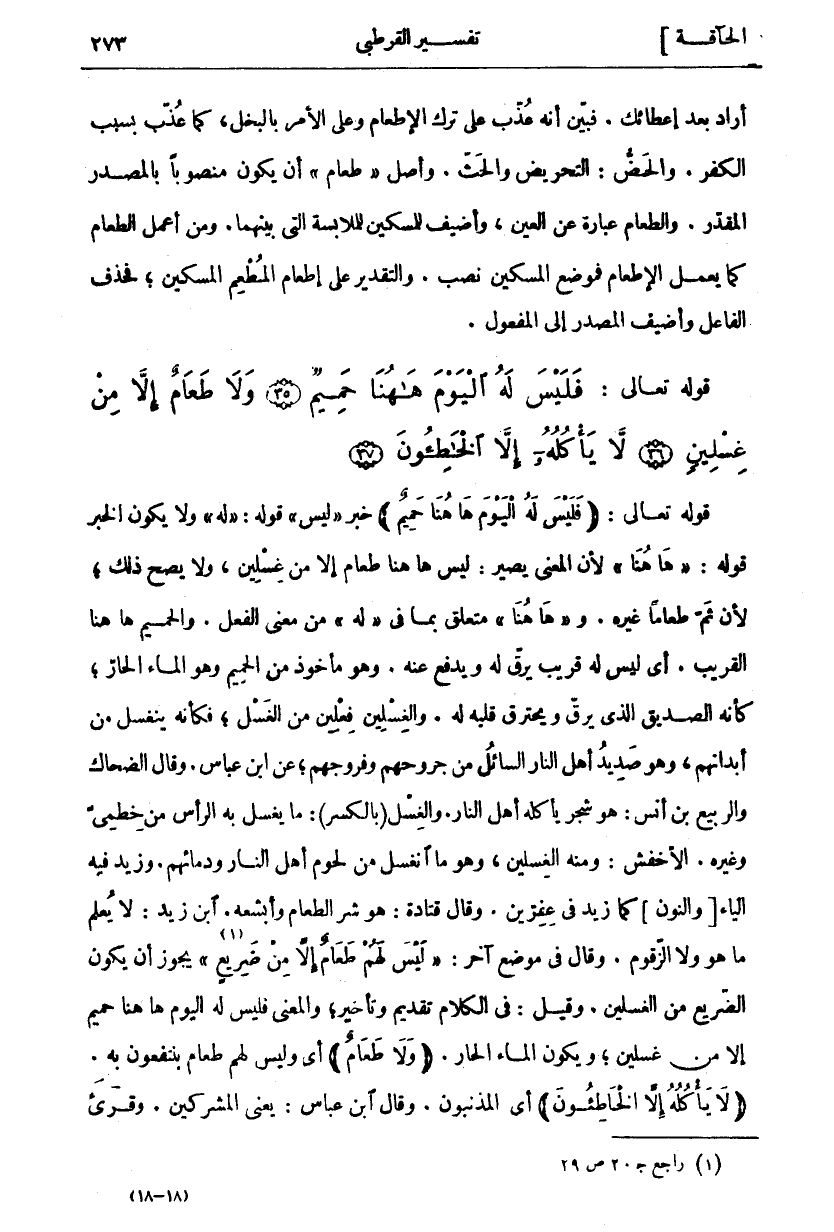 الحآقة ] تفسير القرطبى ٢٧٣
أراد بعد إعطائك . فبيّن أنه عُذّب على ترك الإطعام وعلى الأمر بالبخل، كما عُذّب بسبب
الكفر . والحَضُّ : التحريض والحَثّ . وأصل « طعام » أن يكون منصوباً بالمصدر
المقدّر . والطعام عبارة عن العين ، وأضيف للسكين لللابسة التى بينهما. ومن أعمل الطعام
كما يعمل الإطعام فموضع المسكين نصب . والتقدير على إطعام المُطْعِم المسكين ؛ فحذف
الفاعل وأضيف المصدر إلى المفعول .
قوله تعالى : فَلَيْسَ لَهُ ٱلْيَوْمَ هَـٰهُنَا حَمِيمٌ ۝٣٥ وَلَا طَعَامٌ إِلَّا مِنْ
غِسْلِينٍ ۝٣٦ لَّا يَأْكُلُهُۥٓ إِلَّا ٱلْخَـٰطِئُونَ ۝٣٧
قوله تعالى : ﴿ فَلَيْسَ لَهُ الْيَوْمَ هَا هُنَا حَمِيمٌ ﴾ خبر «ليس» قوله : «له» ولا يكون الخبر
قوله : « هَا هُنَا » لأن المعنى يصير : ليس ها هنا طعام إلا من غِسْلِين ، ولا يصح ذلك ؛
لأن ثَمّ طعامًا غيره . و « هَا هُنَا » متعلق بما فى « له » من معنى الفعل . والحميم ها هنا
القريب . أى ليس له قريب يرقّ له ويدفع عنه . وهو مأخوذ من الحميم وهو الماء الحارّ ؛
كأنه الصديق الذى يرقّ ويحترق قلبه له . والغِسْلِين فِعْلِين من الغَسْل ؛ فكأنه ينغسل من
أبدانهم ، وهو صَدِيدُ أهل النار السائلُ من جروحهم وفروجهم ؛ عن ابن عباس . وقال الضحاك
والربيع بن أنس : هو شجر يأكله أهل النار. والغِسْل (بالكسر) : ما يغسل به الرأس من خِطمِىّ
وغيره . الأخفش : ومنه الغِسلين ، وهو ما ٱنغسل من لحوم أهل النار ودمائهم . وزيد فيه
الياء [ والنون ] كما زيد فى عِفِرّين . وقال قتادة : هو شر الطعام وأبشعه. ٱبن زيد : لا يُعلم
ما هو ولا الزّقوم . وقال فى موضع آخر : « لَيْسَ لَهُمْ طَعَامٌ إِلَّا مِنْ ضَرِيعٍ (١) » يجوز أن يكون
الضّريع من الغسلين . وقيل : فى الكلام تقديم وتأخير؛ والمعنى فليس له اليوم ها هنا حميم
إلا من غسلين ؛ ويكون الماء الحار . ﴿ وَلَا طَعَامٌ ﴾ أى وليس لهم طعام ينتفعون به .
﴿ لَا يَأْكُلُهُ إِلَّا الْخَاطِئُونَ ﴾ أى المذنبون . وقال ٱبن عباس : يعنى المشركين . وقرئ
(١) راجع جـ ٢٠ ص ٢٩
(١٨-١٨)